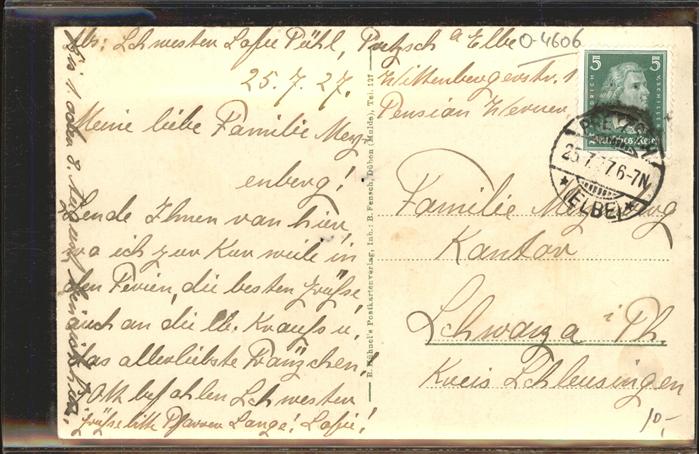 Abs: Schwester Sofie Pühl, Pretzsch a Elbe
Wittenbergerstr. 1
Pension Werner
25. 7. 27.
Meine liebe Familie Merz-
enberg!
Sende Ihnen von hier,
wo ich zur Kur weile in
den Ferien, die besten Grüsse,
auch an die lb. Krauss u.
das allerliebste Fränzchen!
Gott befohlen Schwester
Grüsse bitte Pfarrer Lange! Sofie!
Bin 1. oder 8. August
R. Hühnel's Postkartenverlag, Inh.: R. Fensch, Düben (Mulde), Tel. 127
0-4606
5 5
Deutsches Reich
PRETZSCH
25.7.27.6-7N
* (ELBE) *
Familie
Kantor
Schwarza i Th.
Kreis Schleusingen
10,-